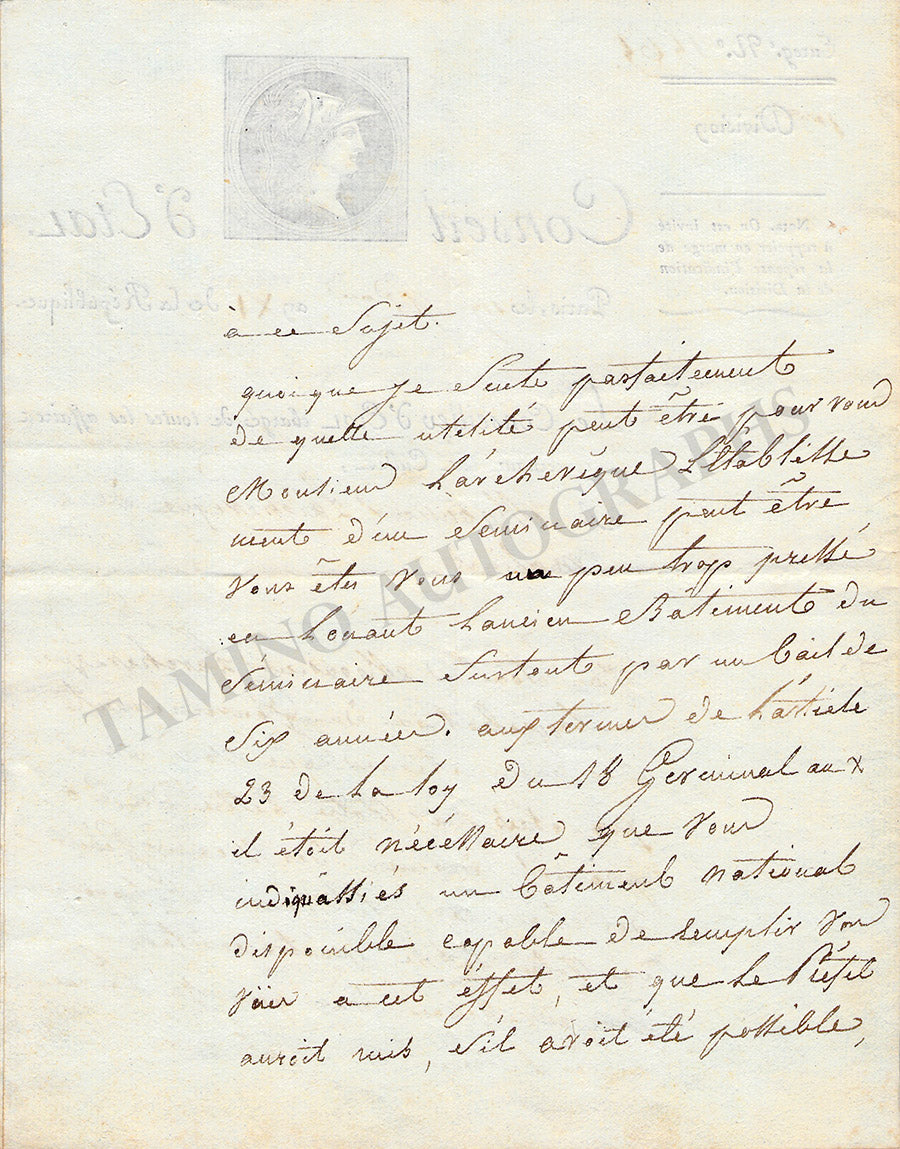 à ce Sujet.
quoique je Sente parfaitement
de quelle utilité peut être pour vous
Monsieur L'archevêque L'Etablisse
ment d'un Seminaire peut être
vous êtes vous un peu trop pressé
en Louant L'ancien Batiment du
Seminaire Surtout par un bail de
Six années. aux termes de L'article
23 de La loy du 18 Germinal an X
il étoit nécessaire que vous
indiquassiés un bâtiment national
disponible capable de remplir vos
vües a cet éffet, et que Le Préfet
auroit mis, s'il avoit été possible,
Enreg. N.
Division
Nota. On est invité
à rappeler en marge de
la réponse l'indication
de la Division.
Conseil d'Etat.
Paris, le an XI de la République.
d'Etat chargé de toutes les affaires
TAMINO AUTOGRAPHS